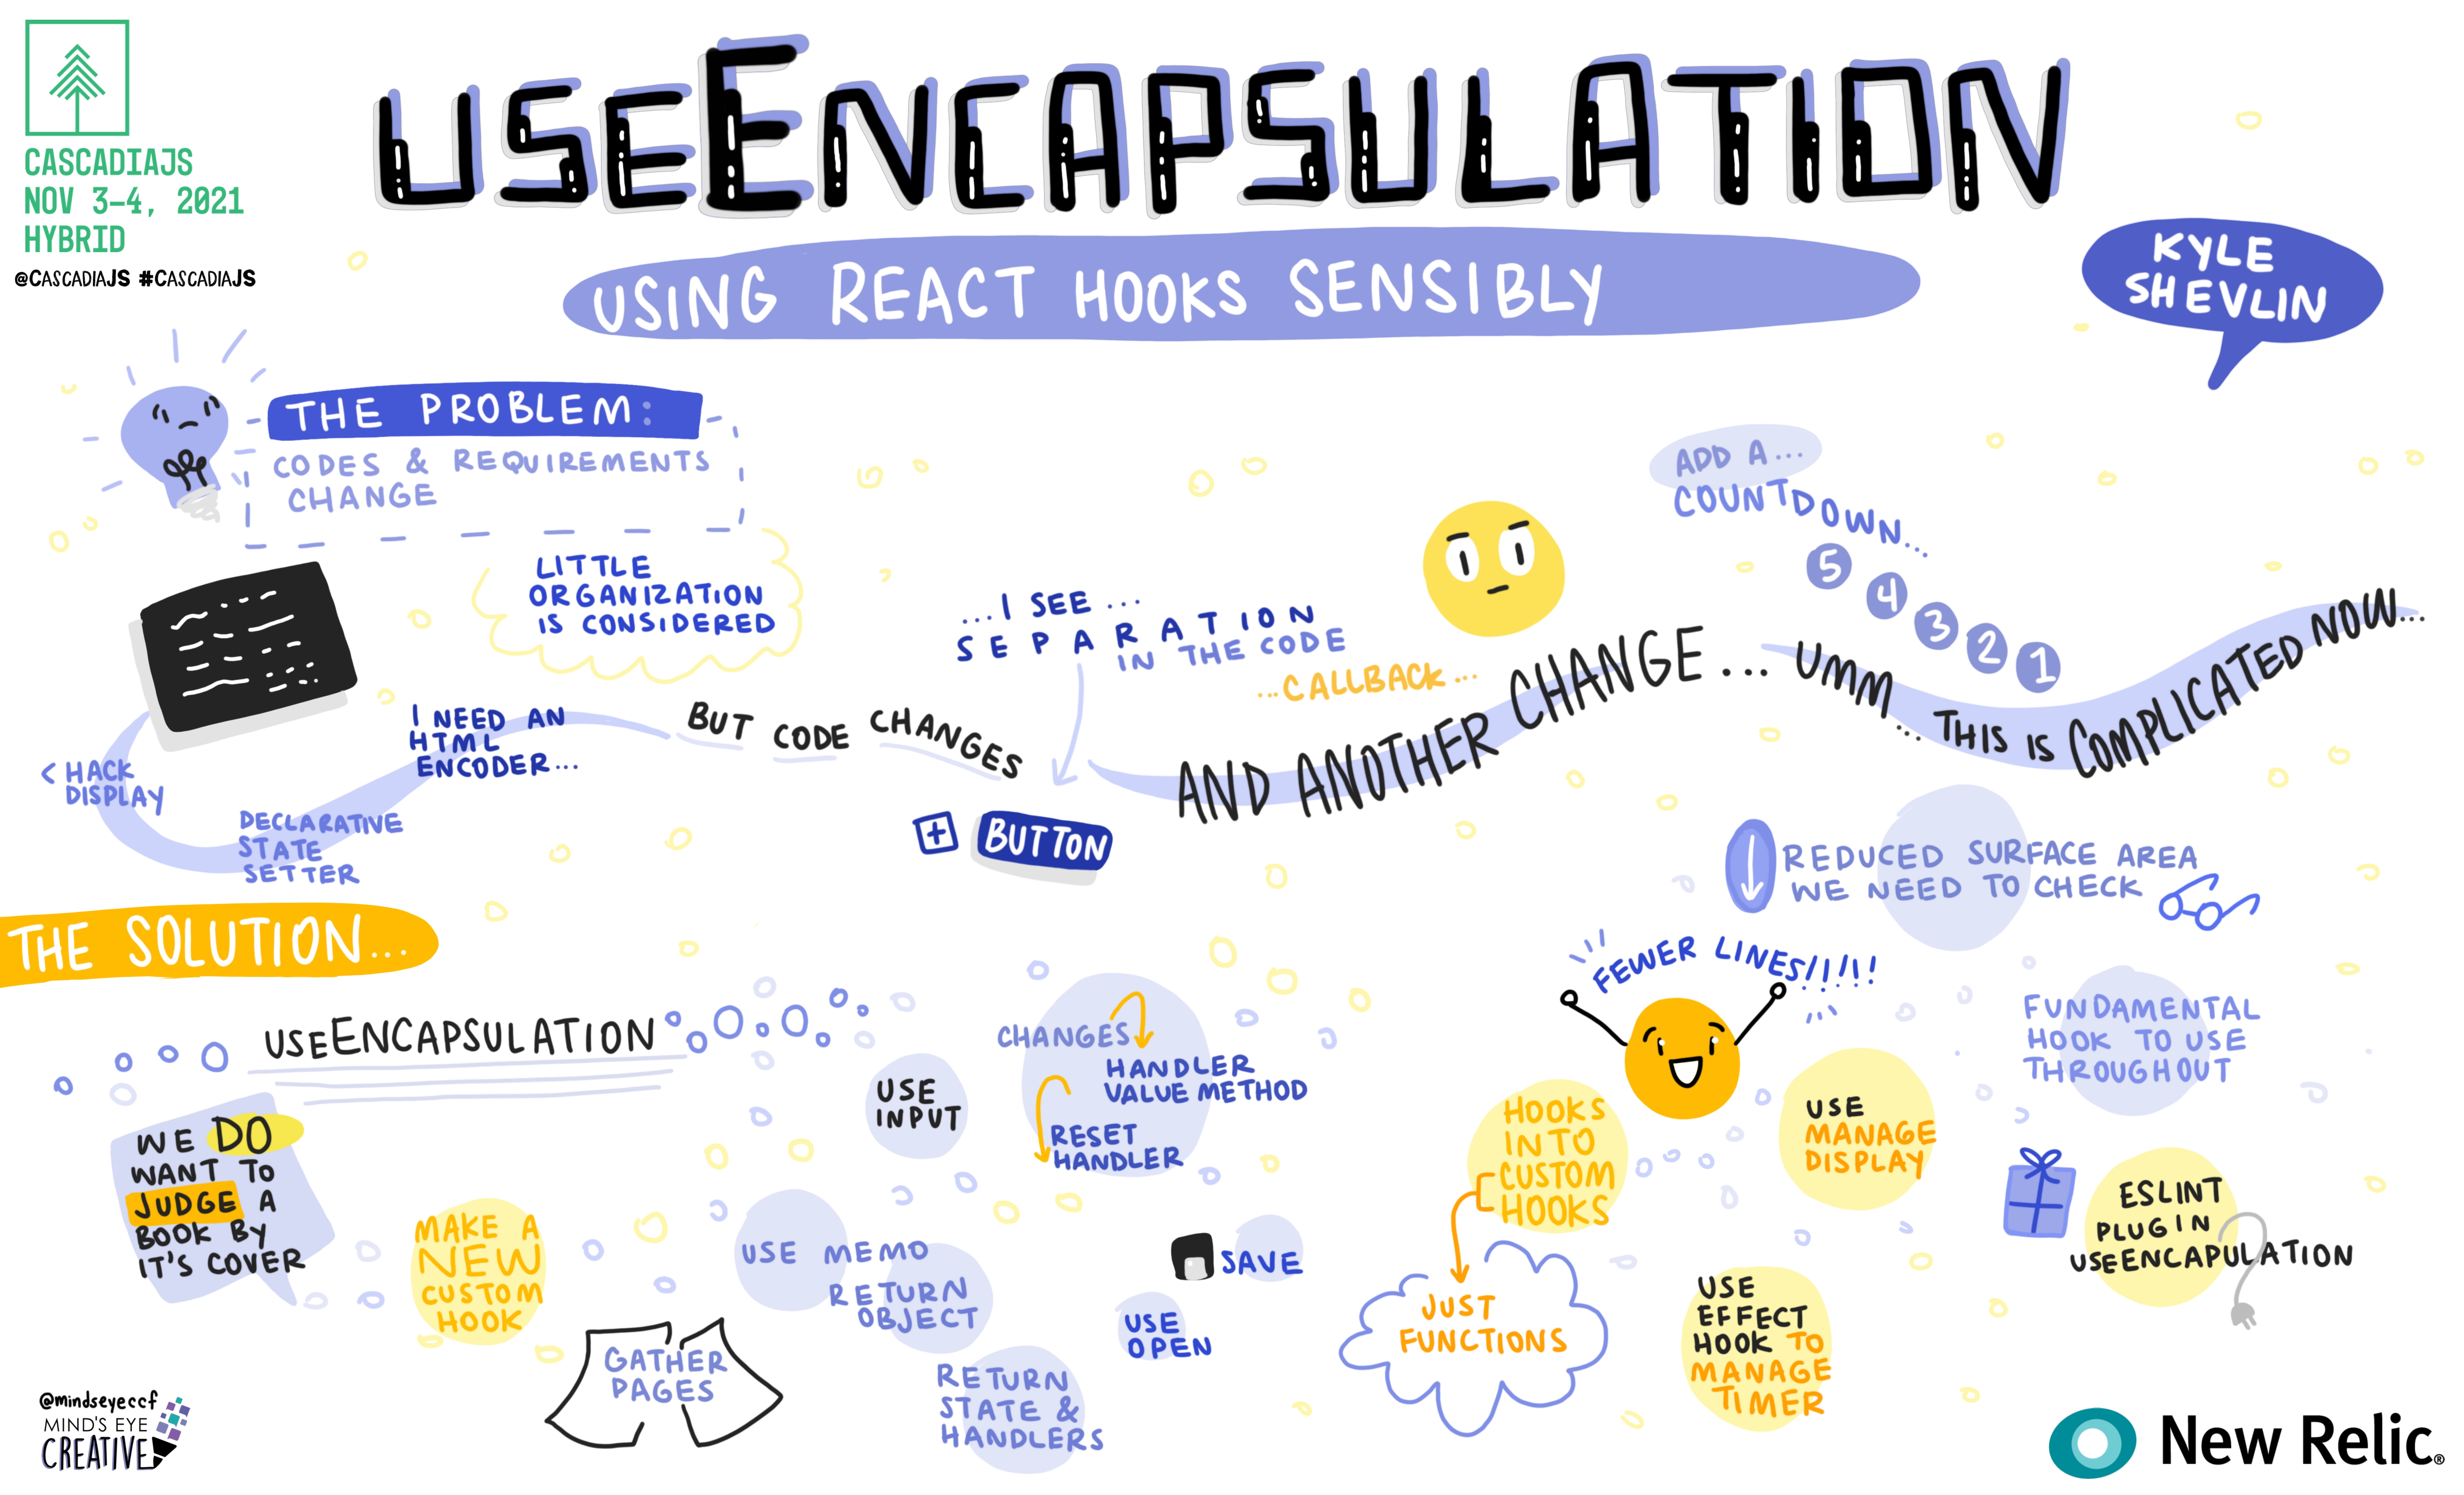 CASCADIAJS
NOV 3-4, 2021
HYBRID
@CASCADIAJS #CASCADIAJS
USEENCAPSULATION
USING REACT HOOKS SENSIBLY
KYLE
SHEVLIN
THE PROBLEM:
CODES & REQUIREMENTS
CHANGE
LITTLE
ORGANIZATION
IS CONSIDERED
< HACK
DISPLAY
DECLARATIVE
STATE
SETTER
I NEED AN
HTML
ENCODER...
BUT CODE CHANGES
...I SEE...
SEPARATION
IN THE CODE
...CALLBACK...
+ BUTTON
AND ANOTHER CHANGE...
ADD A...
COUNTDOWN...
5
4
3
2
1
UMM... THIS IS COMPLICATED NOW...
REDUCED SURFACE AREA
WE NEED TO CHECK
THE SOLUTION...
USEENCAPSULATION
WE DO
WANT TO
JUDGE A
BOOK BY
IT'S COVER
MAKE A
NEW
CUSTOM
HOOK
GATHER
PAGES
USE
INPUT
CHANGES
HANDLER
VALUE METHOD
RESET
HANDLER
USE MEMO
RETURN
OBJECT
RETURN
STATE &
HANDLERS
SAVE
USE
OPEN
FEWER LINES!!!!!
HOOKS
INTO
CUSTOM
HOOKS
JUST
FUNCTIONS
USE
MANAGE
DISPLAY
USE
EFFECT
HOOK TO
MANAGE
TIMER
FUNDAMENTAL
HOOK TO USE
THROUGHOUT
ESLINT
PLUGIN
USEENCAPULATION
@mindseyeccf
MIND'S EYE
CREATIVE
New Relic®